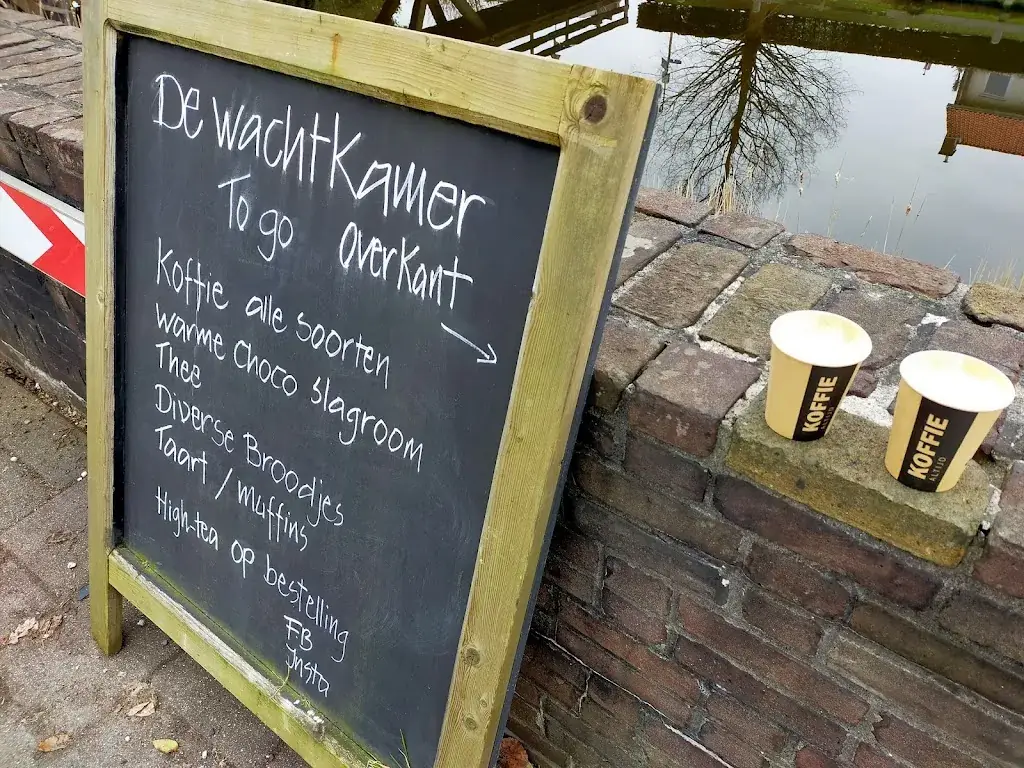 De wachtkamer
To go overkant
Koffie alle soorten
warme choco slagroom
Thee
Diverse Broodjes
Taart / muffins
High-tea op bestelling
FB
Insta
KOFFIE
ALTIJD
KOFFIE
ALTIJD